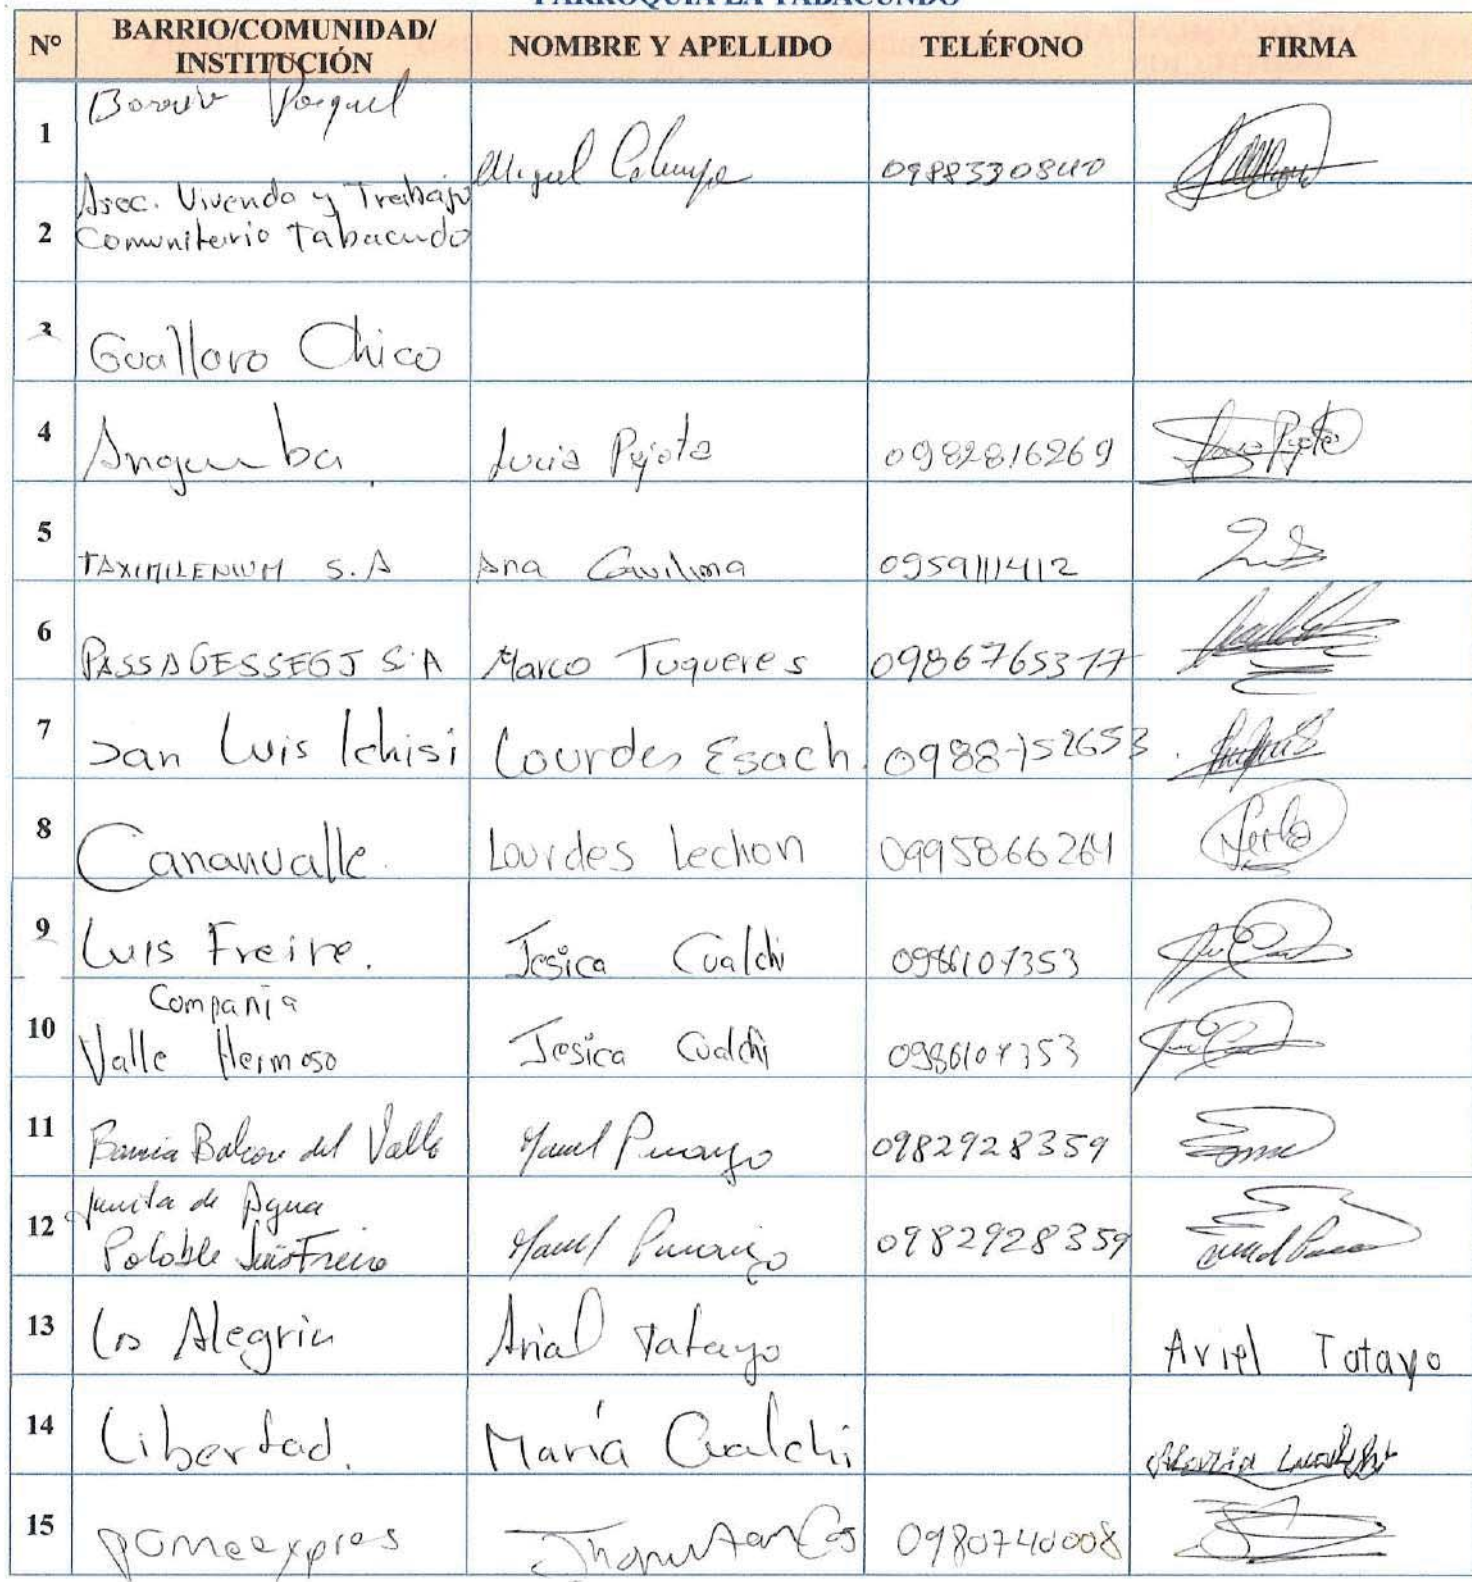 PARROQUIA LA TABACUNDO
N° BARRIO/COMUNIDAD/ INSTITUCIÓN NOMBRE Y APELLIDO TELÉFONO FIRMA
1 Miguel 0988330840
2 Asoc. Vivenda y Trabajo
Comunitario Tabacudo
3 Guallaro Chico
4 Angumba Lucia Pijota 0982816269
5 TAXIMILENIUM S.A Ana Cavilima 0959111412
6 PASSAGESSEGJ S.A Marco Tuqueres 0986765377
7 San Luis Ichisi Lourdes Esach. 0988752653
8 Cananvalle. Lourdes Lechon 0995866264
9 Luis Freire. Jesica Cualchi 0986107353
10 Compania
Valle Hermoso Jesica Cualchi 0986107353
11 Balcon del Valle 0982928359
12 Junta de Agua
Potable Luis Freire 0982928359
13 Alegria Arial Tatayo Ariel Tatayo
14 Libertad. María Cualchi
15 pomeexpres 0980740008